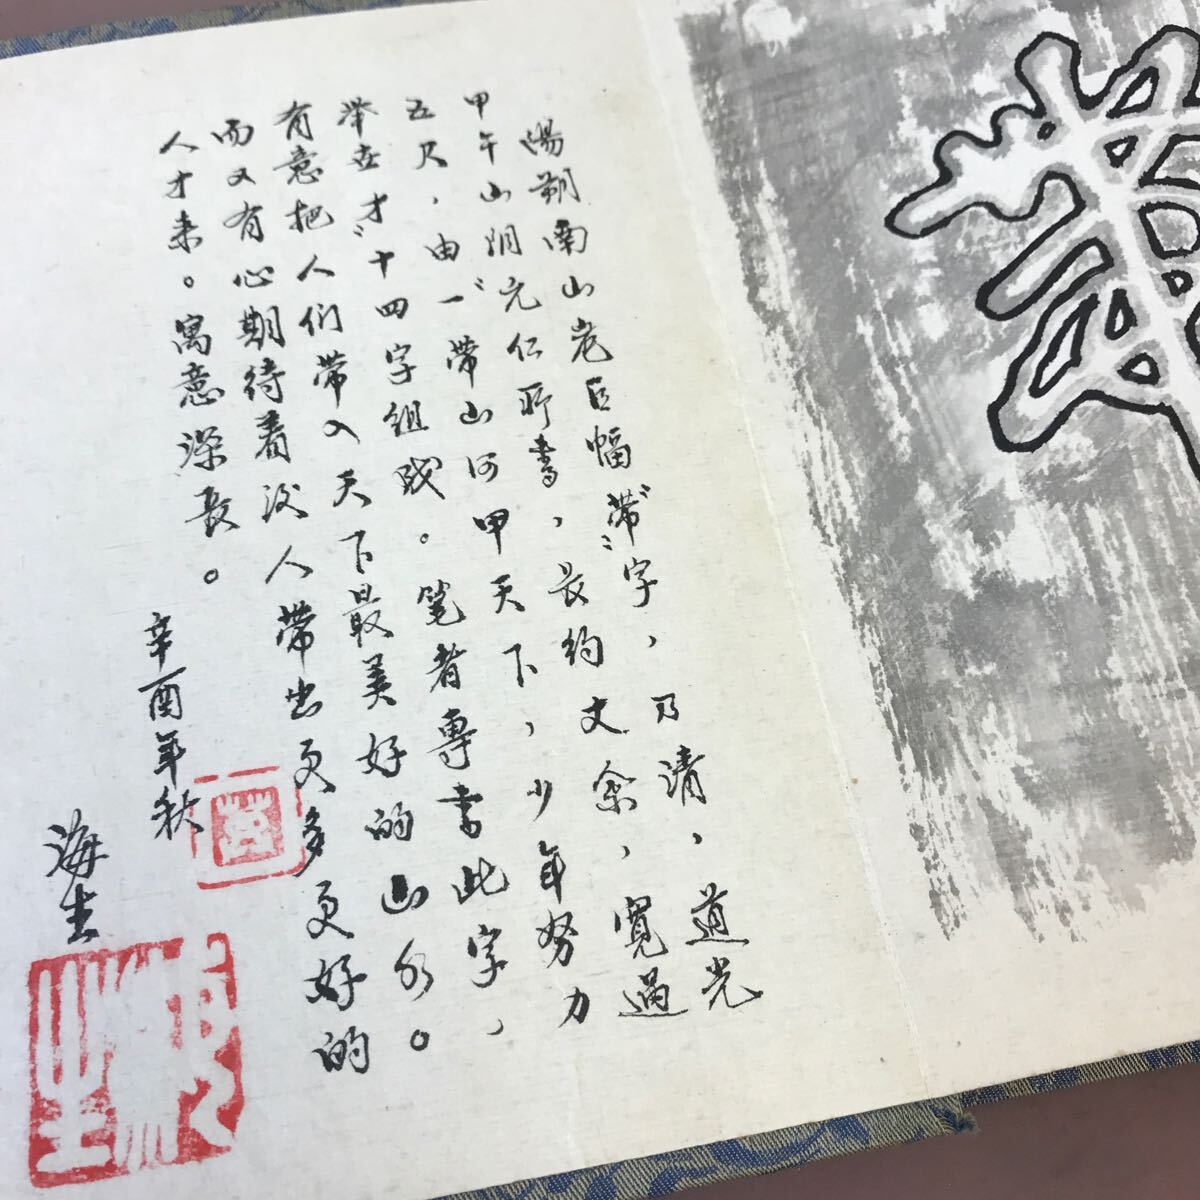 陽朔南山崖巨幅“带”字，乃清，道光
甲午山阴元仁所書，长约丈余，寬過
五尺，由“一带山河甲天下，少年努力
举世才”十四字組成。笔者專書此字，
有意把人们带入天下最美好的山水。
而又有心期待着後人带出更多更好的
人才来。寓意深長。
辛酉年秋
海生